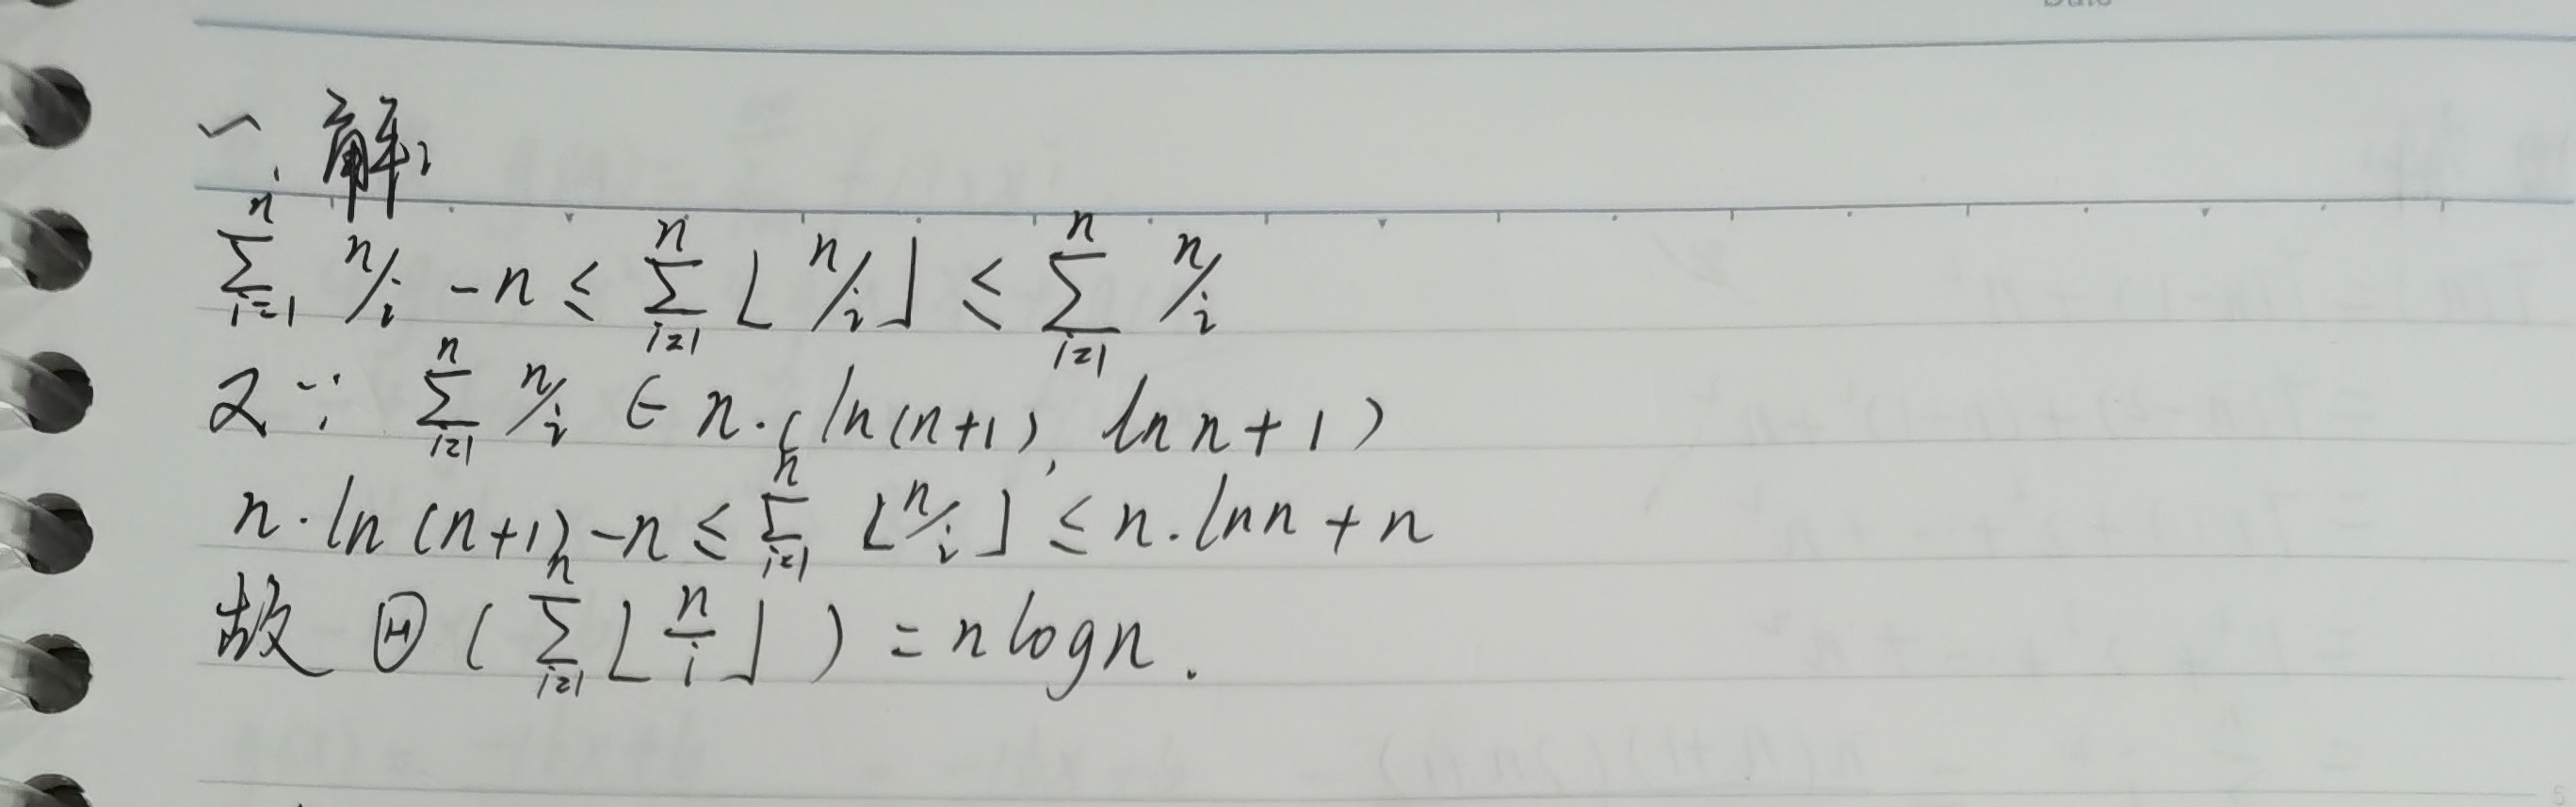 Date
一. 解:
$\sum_{i=1}^{n} n/i - n \leq \sum_{i=1}^{n} \lfloor n/i \rfloor \leq \sum_{i=1}^{n} n/i$
又∵ $\sum_{i=1}^{n} n/i \in n \cdot (\ln(n+1), \ln n + 1)$
$n \cdot \ln(n+1) - n \leq \sum_{i=1}^{n} \lfloor n/i \rfloor \leq n \cdot \ln n + n$
故 $\Theta(\sum_{i=1}^{n} \lfloor \frac{n}{i} \rfloor) = n \log n.$